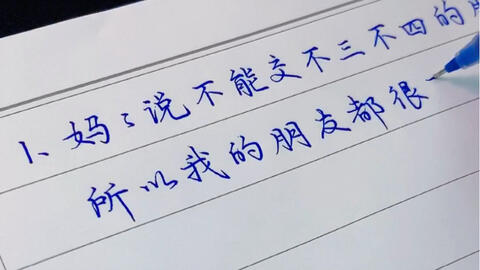 1、妈々说不能交不三不四的
所以我的朋友都很